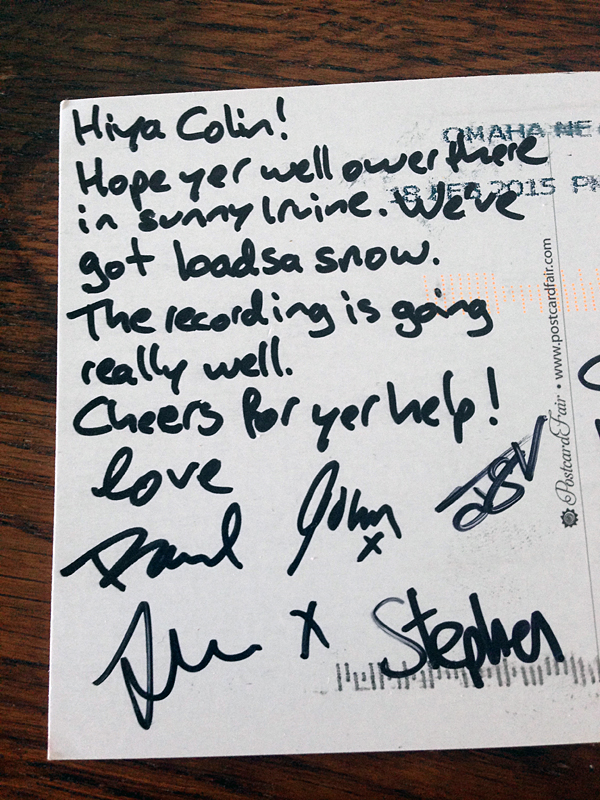 Hiya Colin!
Hope yer well ower there
in sunny Irvine. We've
got loadsa snow.
The recording is going
really well.
Cheers for yer help!
love
Paul John x
x Stephen
OMAHA NE
18 FEB 2015 PM
PostcardFair • www.postcardfair.com